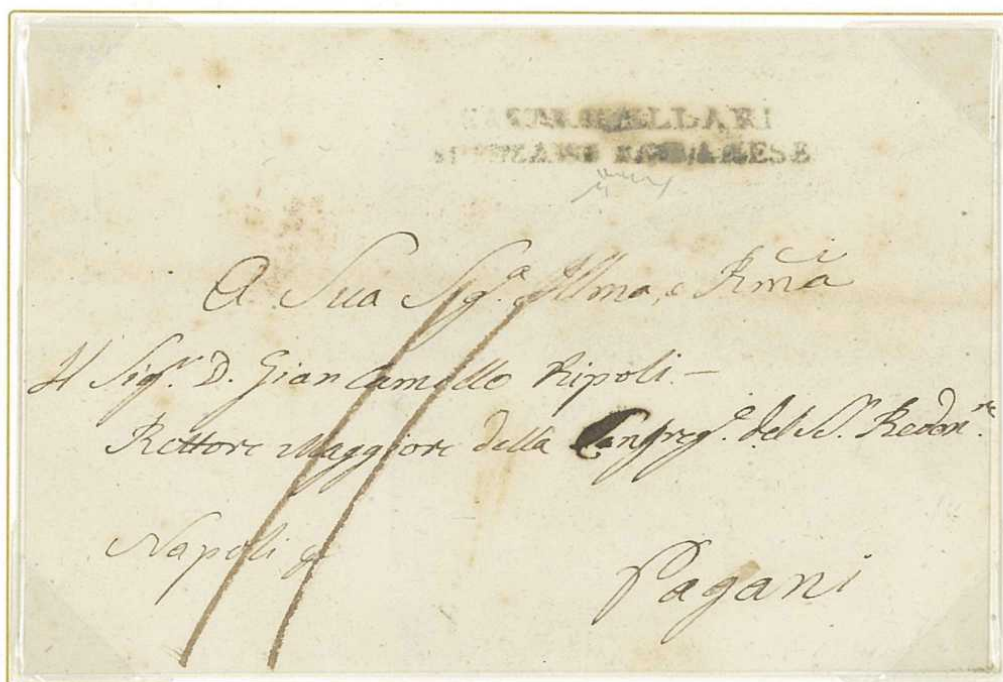 SPEZZANO ALBANESE
A Sua Sig.ª Illma, e Rma
Il Sigr. D. Gian Camillo Ripoli –
Rettore Maggiore della Congreg.e del SS. Redent.re
Napoli p
Pagani